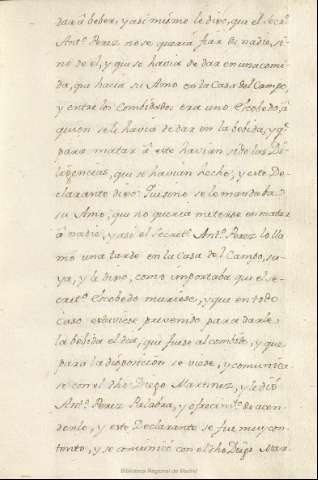 dar à beber, y así mismo le dixo, que el Secr.º
Ant.º Perez no se queria fiar de nadie, si
no de el, y que se havia de dar en una comi
da, que hacia su Amo en la Casa del Campo,
y entre los Combidados era uno Escobedo, à
quien se le havia de dar en la bebida, y q.e
para matar à este havian sido las Di
ligencias, que se havian hecho, y este De
clarante dijo: Que si no se lo mandaba
su Amo, que no queria meterse en matar
à nadie, y así el Secret.º Ant.º Perez lo lla
mó una tarde en la Casa del Campo, su
ya, y le dixo, como importaba que el Se
cret.º Escobedo muriese, y que en todo
caso estuviese prevenido para darle
la bebida el dia, que fuese al combite, y que
para la disposicion se viese, y comunica
se con el dho Diego Martinez, y le dió
Ant.º Perez Palabra, y ofrecim.to de acon
derlo, y este Declarante se fue muy con
tento, y se comunicó con el dho Diego Mar-
Biblioteca Regional de Madrid